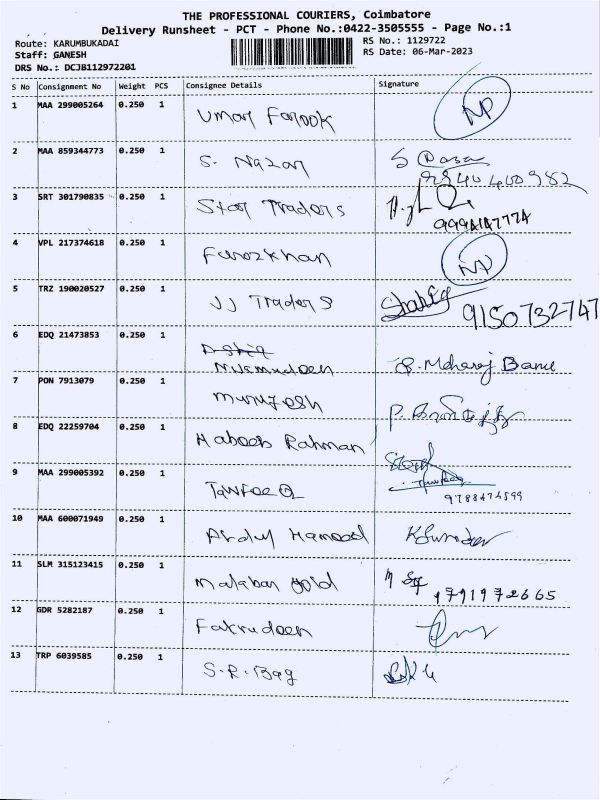 THE PROFESSIONAL COURIERS, Coimbatore
Delivery Runsheet - PCT - Phone No.:0422-3505555 - Page No.:1
Route: KARUMBUKADAI
Staff: GANESH
DRS No.: DCJB112972201
RS No.: 1129722
RS Date: 06-Mar-2023
S No Consignment No Weight PCS Consignee Details Signature
1 MAA 299005264 0.250 1 Umar Farook NP
2 MAA 859344773 0.250 1 S. Nazar S
3 SRT 301790835 0.250 1 Star Traders
4 VPL 217374618 0.250 1 Farozkhan NP
5 TRZ 190020527 0.250 1 JJ Traders 9150732747
6 EDQ 21473853 0.250 1
7 PON 7913079 0.250 1 Murugesh
8 EDQ 22259704 0.250 1 Habeeb Rahman
9 MAA 299005392 0.250 1 TawfeeQ
9788474599
10 MAA 600071949 0.250 1 Abdul Hameed
11 SLM 315123415 0.250 1 Malabar Gold
12 GDR 5282187 0.250 1 Fakrudeen
13 TRP 6039585 0.250 1 S.R. Bag